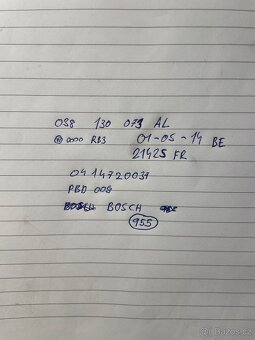 038 130 073 AL
0000 RB3 01-05-14 BE
21425 FR
0414720037
PBD 008
BOSCH
955